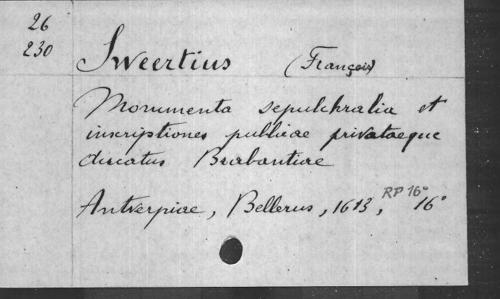 26
230
Sweertius (François)
Monumenta sepulchralia et
inscriptiones publicae privataeque
ducatus Brabantiae
RP 16°
Antverpiae, Bellerus, 1613, 16°